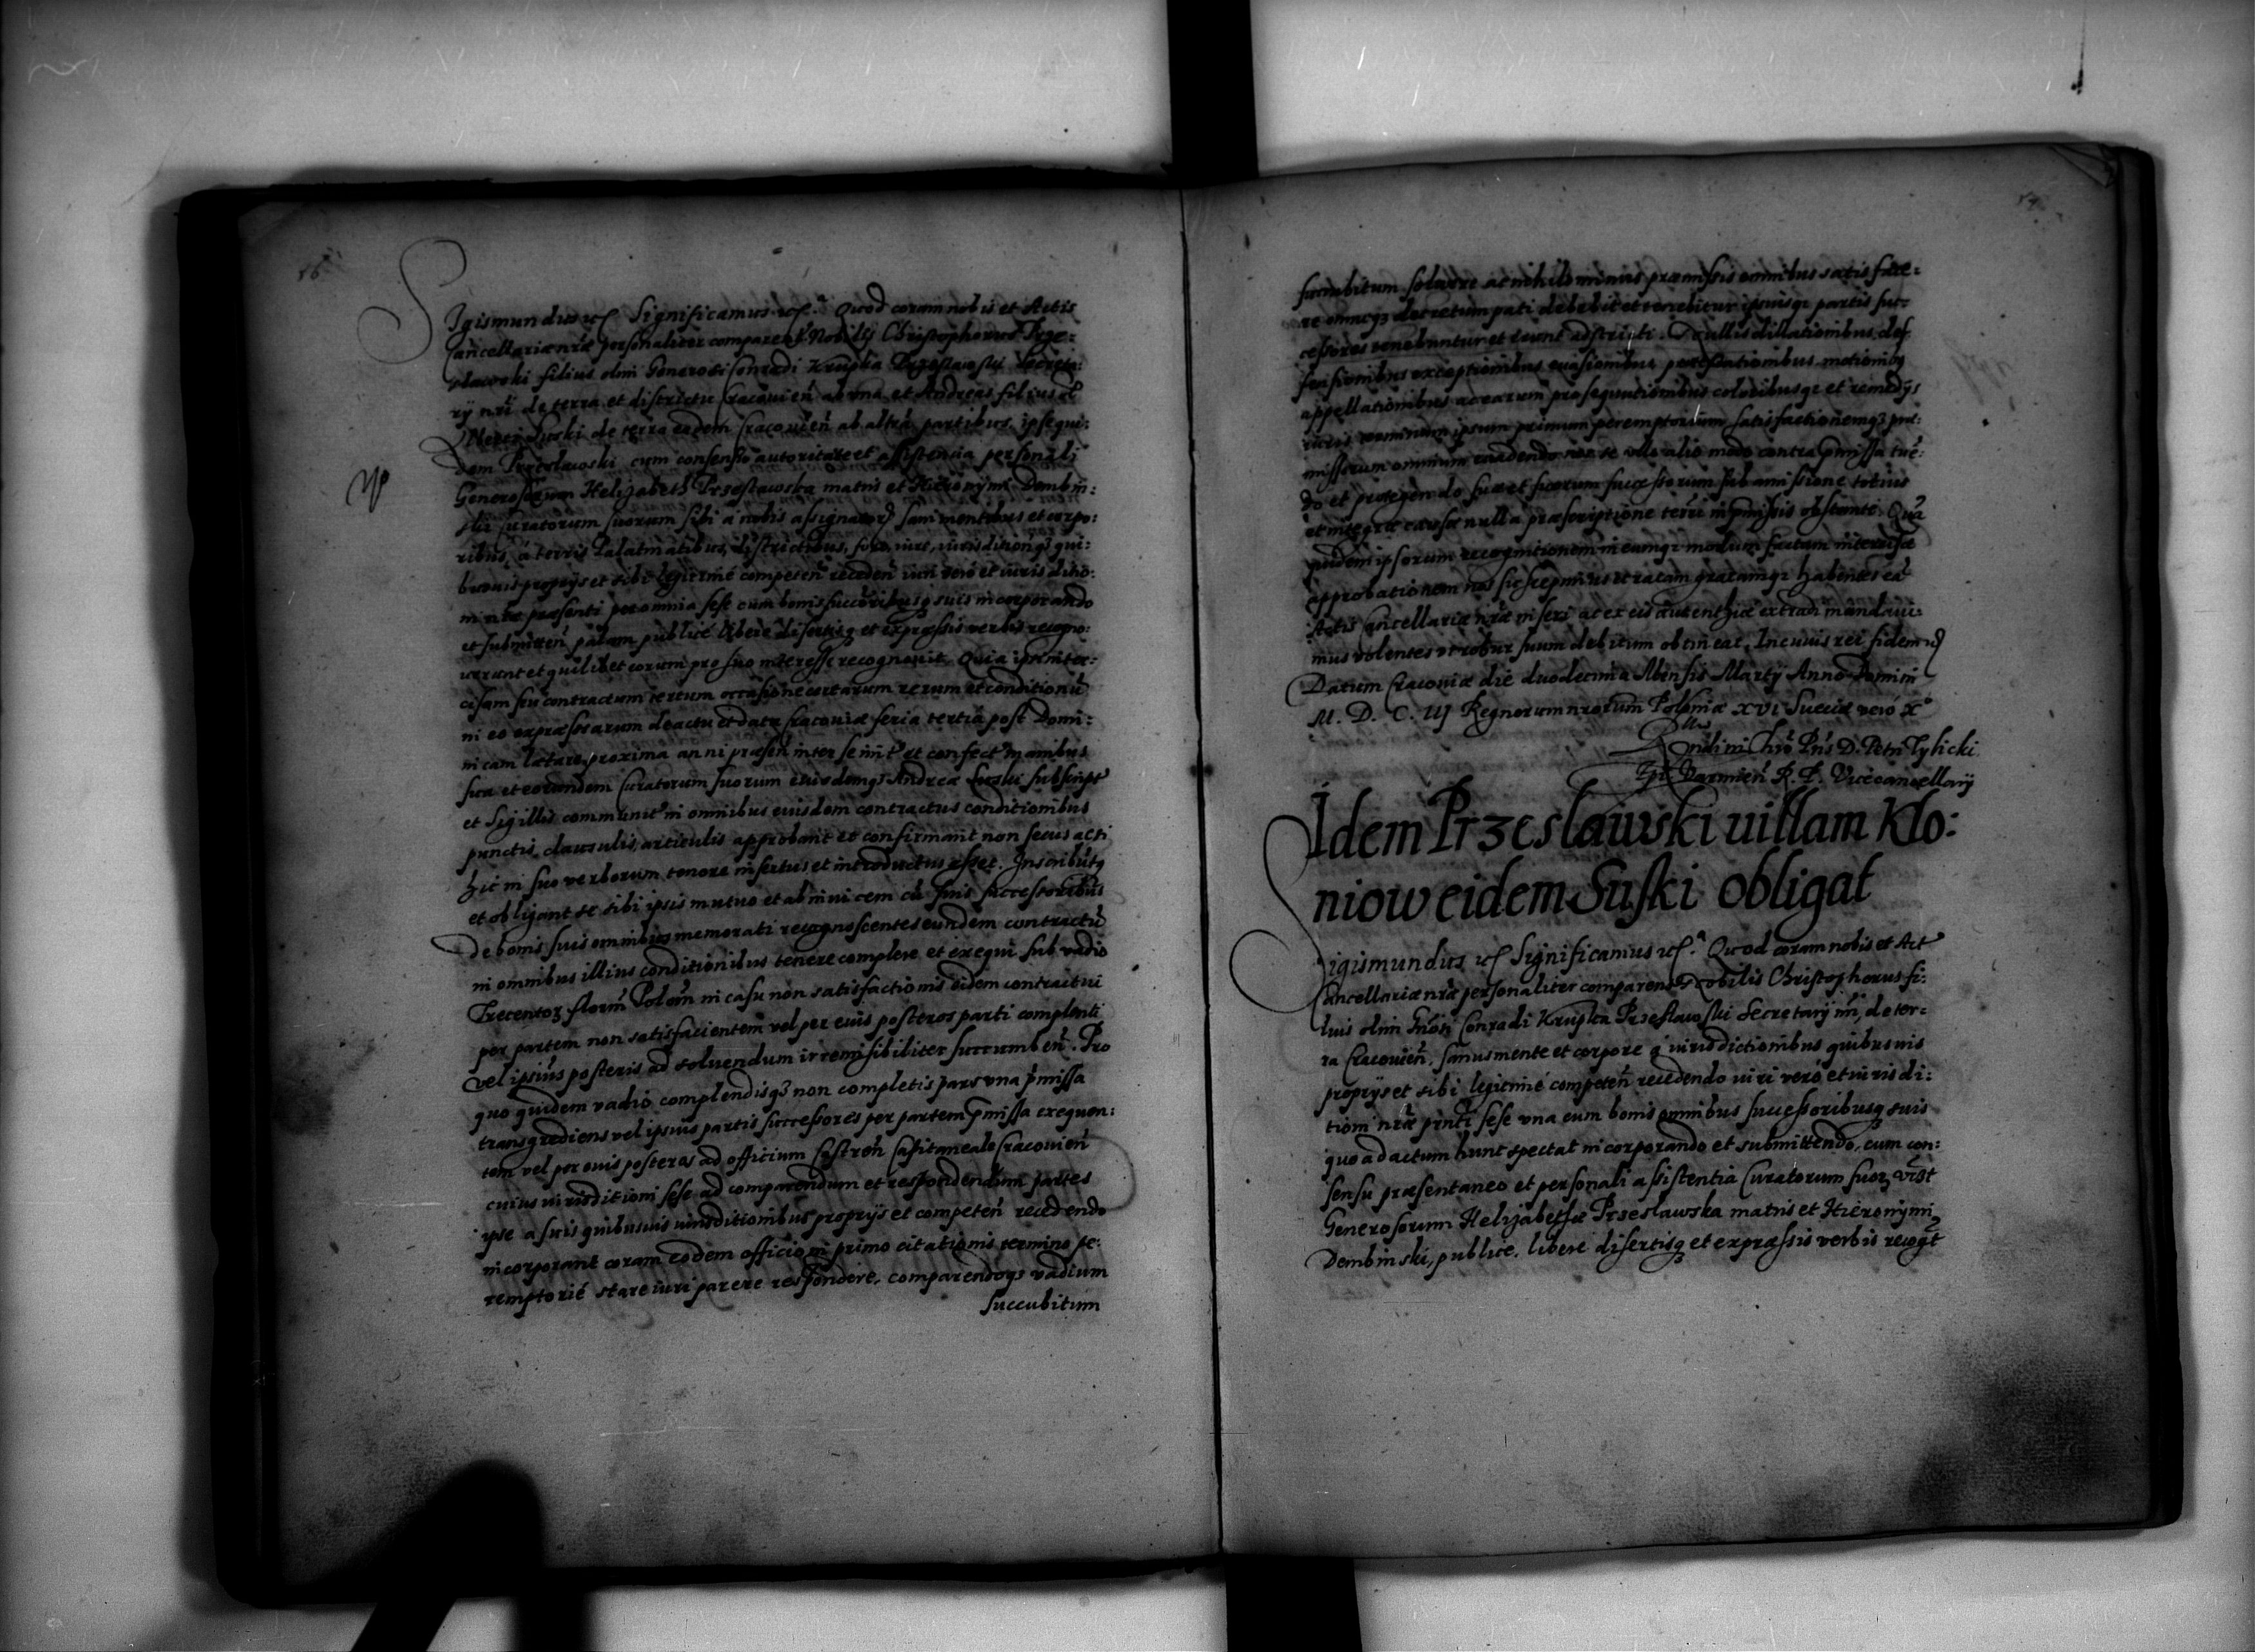 56
Sigismundus etc Significamus etc. Quod coram nobis et Actis
Cancellariæ nræ personaliter comparent Nobiles Christophorus Prze:
slawski filius olim Generosi Conradi Krupka Przeslawski Secreta:
rÿ nri de terra et districtu Cracovien ab una et Andreas filius
Suski de terra eadem Cracovien ab altra partibus, ipse qui:
dem Przeslawski cum consensu autoritate et assistentia personali
Generosorum Helizabeth Przeslawska matris et Hieronymi Dembin:
ski Curatorum suorum sibi a nobis assignator sani mentibus et corpo:
ribus, a terris Palatinatibus, districtibus, foro, iure, iurisditionq qui:
busuis proprÿs et sibi legitimé competen receden iuri vero et iuris ditio:
ni nræ præsenti per omnia sese cum bonis succoribusq suis incorporando
et submitten palam publicé libere disertisq et expressis verbis recogno:
uerunt et quilibet eorum pro suo interesse recognouit. Quia ipsi inter:
cisam seu contractum certum occasione certarum rerum et conditionū
in eo expræssarum de actu et datu Cracoviæ feria tertia post Domi:
nicam Lætare proxima anni præsen inter se init et confect manibus
sua et eorundem Curatorum suorum eiusdemq Andreæ Suski subscript
et Sigillis communit in omnibus eiusdem contractus conditionibus
punctis, clausulis, articulis approbant et confirmant non secus acsi
hic in suo verborum tenore insertus et introductus esset. Inscribūtq
et obligant se sibi ipsis mutuo et ab inuicem cū suis successoribus
De bonis suis omnibus memorati recognoscentes eundem contractū
in omnibus illius conditionibus tenere complere et exequi sub vadio
Trecentoꝝ florin Polon in casu non satisfactionis eidem contractui
per partem non satisfacientem vel per eius posteros parti complenti
vel ipsius posteris ad soluendum irremisibiliter succumben. Pro
quo quidem vadio complendisq non completis pars una pmissa
transgrediens vel ipsius partis successores per partem pmissa exequen:
tem vel per euis posteros ad officium Castren Capitaneale Cracovien
cuius iurisditioni sese ad comparendum et respondendum partes
ipse a suis quibusuis iurisditionibus proprÿs et competen recedendo
incorporant coram eodem officio in primo citationis termino pe:
remptorié stare iuri parere respondere, comparendoq vadium
succubitum
57
succubitum soluere ac nihilo minus præmissis omnibus satisface:
re omneq decretum pati debebit et tenebitur ipsiusq partis suc:
cessores tenebuntur et erunt adstricti. Nullis dilationibus def
fensionibus exceptionibus euasionibus protestationibus motionibq
appellationibus acearum prosequutionibus coloribusq et remedÿs
iuris terminum ipsum primum peremptorium satisfactionemq præ:
missorum omnium euadendo nec se ullo alio modo contra pmissa tuē:
do et protegendo sua et suorum successorum sub amissione totius
et integræ causæ nulla præscriptione terri in pmissis obstante. Quā
quidem ipsorum recognitionem in eumq modum factam intercisæ
approbationem nos suscepimus et ratam gratamq habentes eā
Actis Cancellariæ nræ inseri ac ex eis autenthice extradi mandaui:
mus volentes ut robur suum debitum obtineat. In cuius rei fidem
Datum Cracoviæ die duodecima Mensis Martÿ Anno Domini
M. D. C. IIJ Regnorum nrorum Poloniæ XVI Sueciæ veró X
Rndi in Chro Pris D. Petri Tylicki
Epi Varmien R. P. Vicecancellarÿ
Idem Przeslawski uillam Klo:
niow eidem Suski obligat
Sigismundus etc Significamus etc. Quod coram nobis et Act
Cancellariæ nræ personaliter comparens Nobilis Christophorus fi:
lius olim Gnosi Conradi Krupka Przeslawski Secretarÿ nri, de ter:
ra Cracovien, sanus mente et corpore a iurisdictionibus quibusuis
proprÿs et sibi legitimé competen recedendo iuri vero et iuris di:
tioni nræ pnti sese una cum bonis omnibus successoribusq suis
quo ad actum hunc spectat incorporando et submittendo, cum con:
sensu præsentaneo et personali assistentia Curatorum suoꝝ vidt
Generosorum Helizabethæ Przeslawska matris et Hieronymi
Dembinski, publice, libere disertisq et expræssis verbis recogt